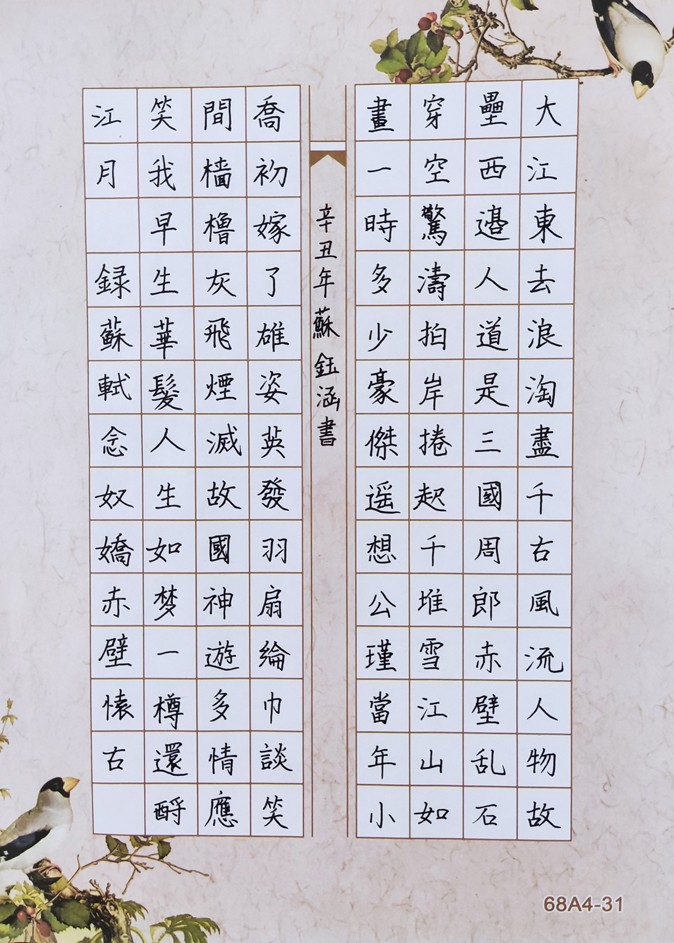 大江東去浪淘盡千古風流人物故
壘西邉人道是三國周郎赤壁乱石
穿空驚濤拍岸捲起千堆雪江山如
畫一時多少豪傑遥想公瑾當年小
喬初嫁了雄姿英發羽扇綸巾談笑
間檣櫓灰飛煙滅故國神遊多情應
笑我早生華髮人生如梦一樽還酹
江月 録蘇軾念奴嬌赤壁懐古
辛丑年蘇鈺涵書
68A4-31